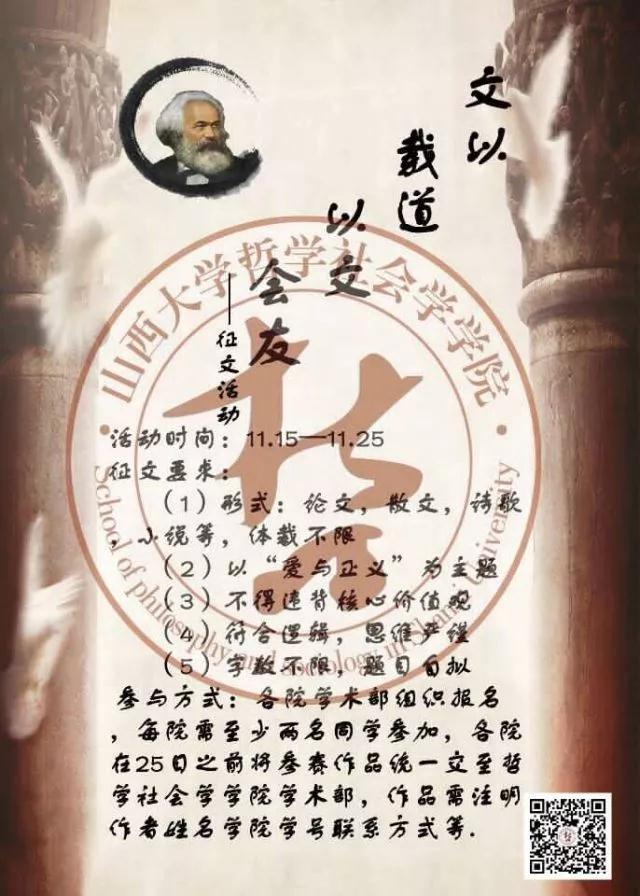 文以
载道
以文
会友
——征文活动
山西大学哲学社会学学院
School of philosophy and sociology in Shanxi University
活动时间：11.15—11.25
征文要求：
（1）形式：论文，散文，诗歌
，小说等，体裁不限
（2）以“爱与正义”为主题
（3）不得违背核心价值观
（4）符合逻辑，思维严谨
（5）字数不限，题目自拟
参与方式：各院学术部组织报名
，每院需至少两名同学参加，各院
在25日之前将参赛作品统一交至哲
学社会学学院学术部，作品需注明
作者姓名学院学号联系方式等.